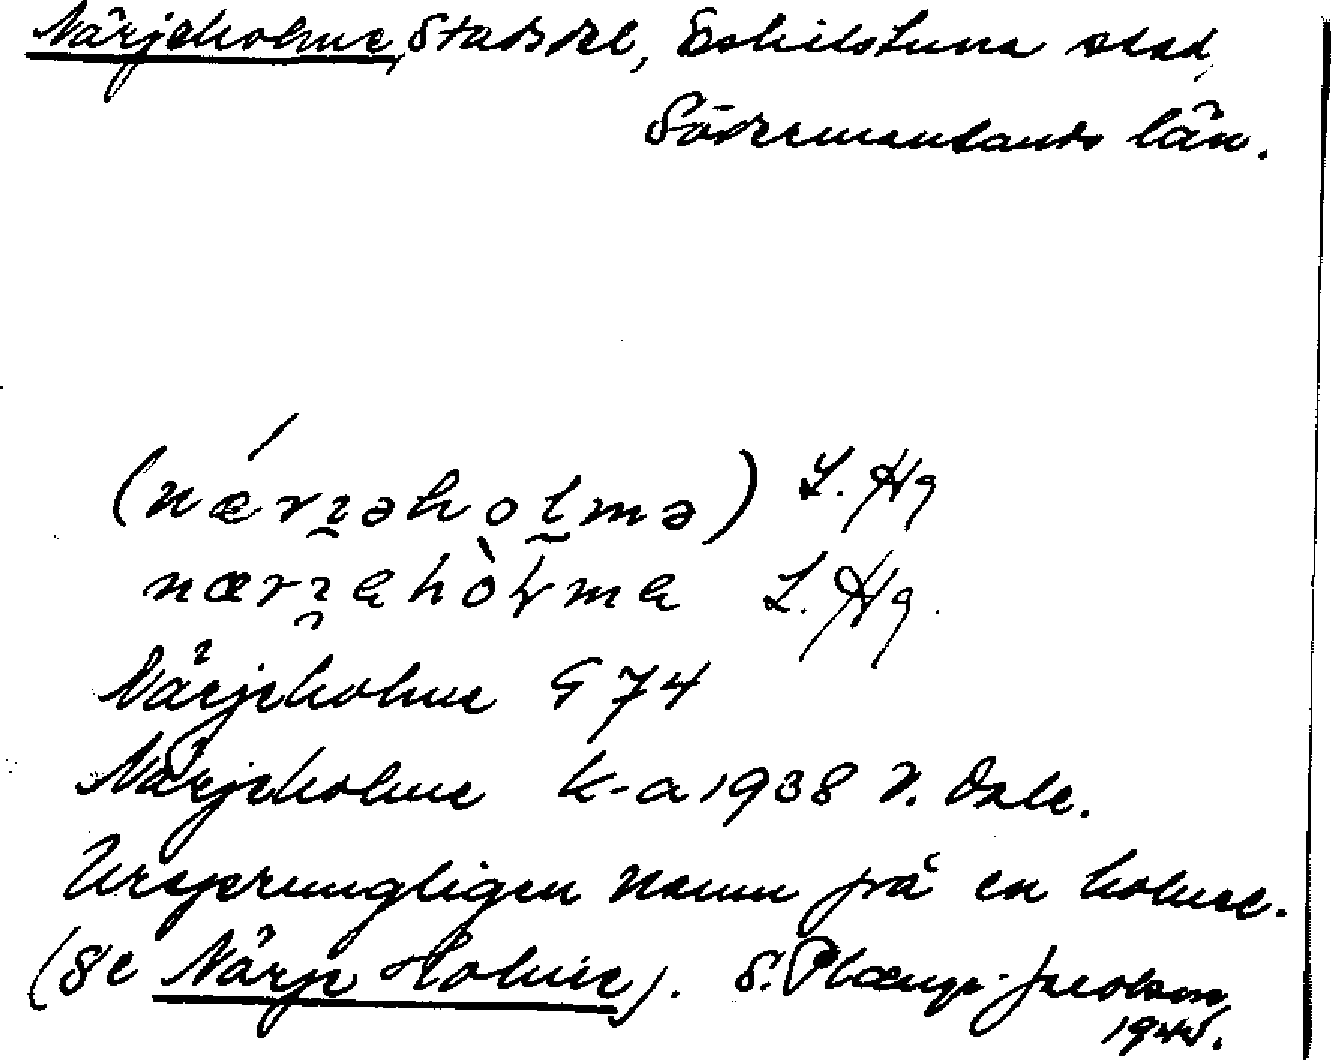 Närjeholme, Stadsdel, Eskilstuna stad,
Södermanlands län.
(nǽrɿəholmə) L. Hg
nærɿahòlma L. Hg.
Närjeholme G 74
Närjeholme k-a 1938 V. Dale.
Ursprungligen namn på en holme.
(Se Närje Holme). S. Plænge-Jacobson